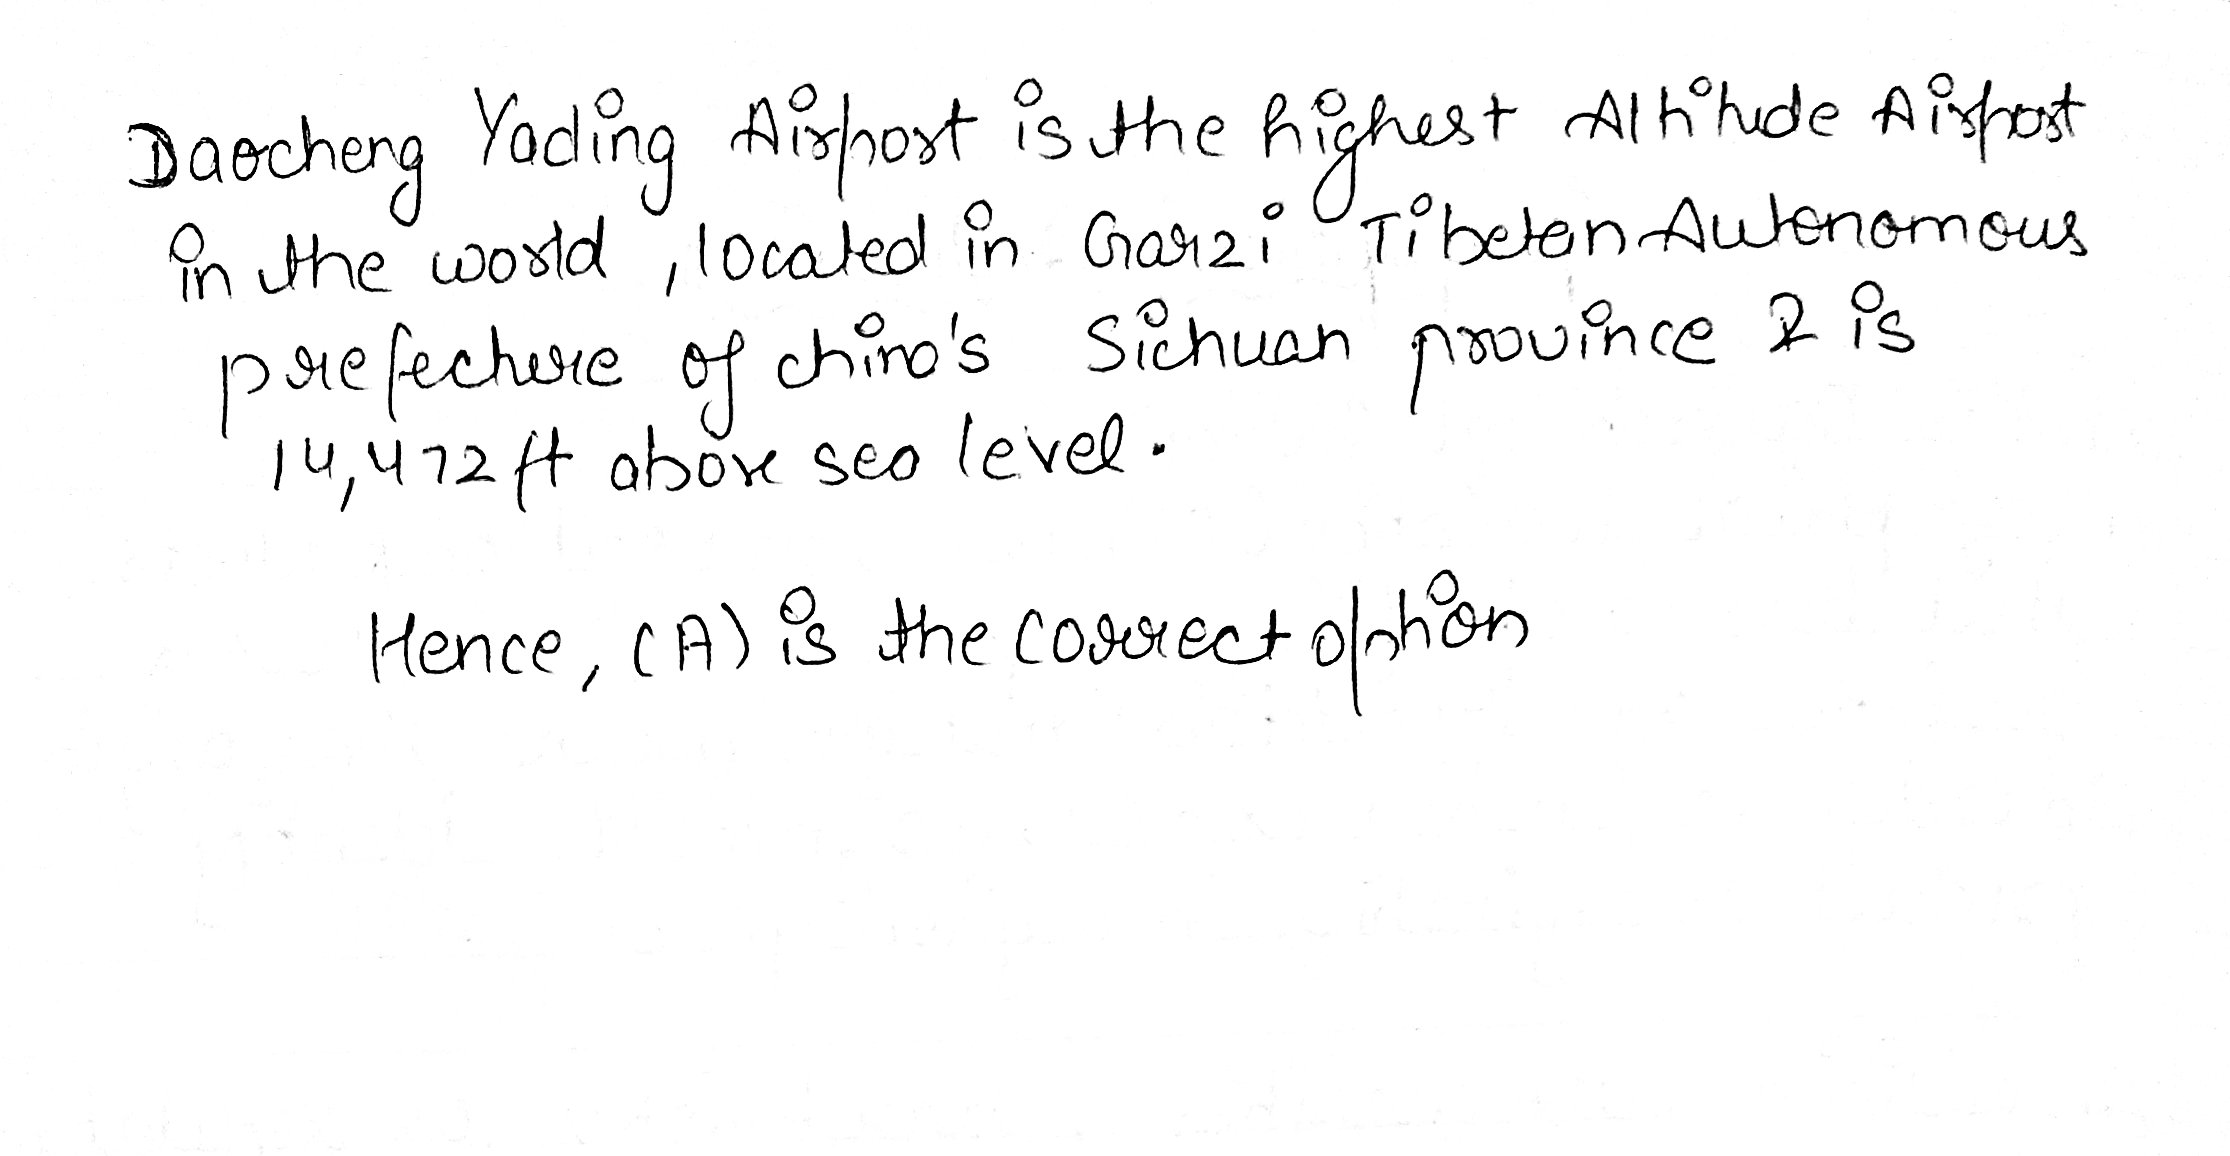 Daocheng Yading Airport is the highest Altitude Airport
in the world, located in Garzi Tibetan Autonomous
prefecture of china's Sichuan province & is
14,472 ft above sea level.
Hence, (A) is the correct option